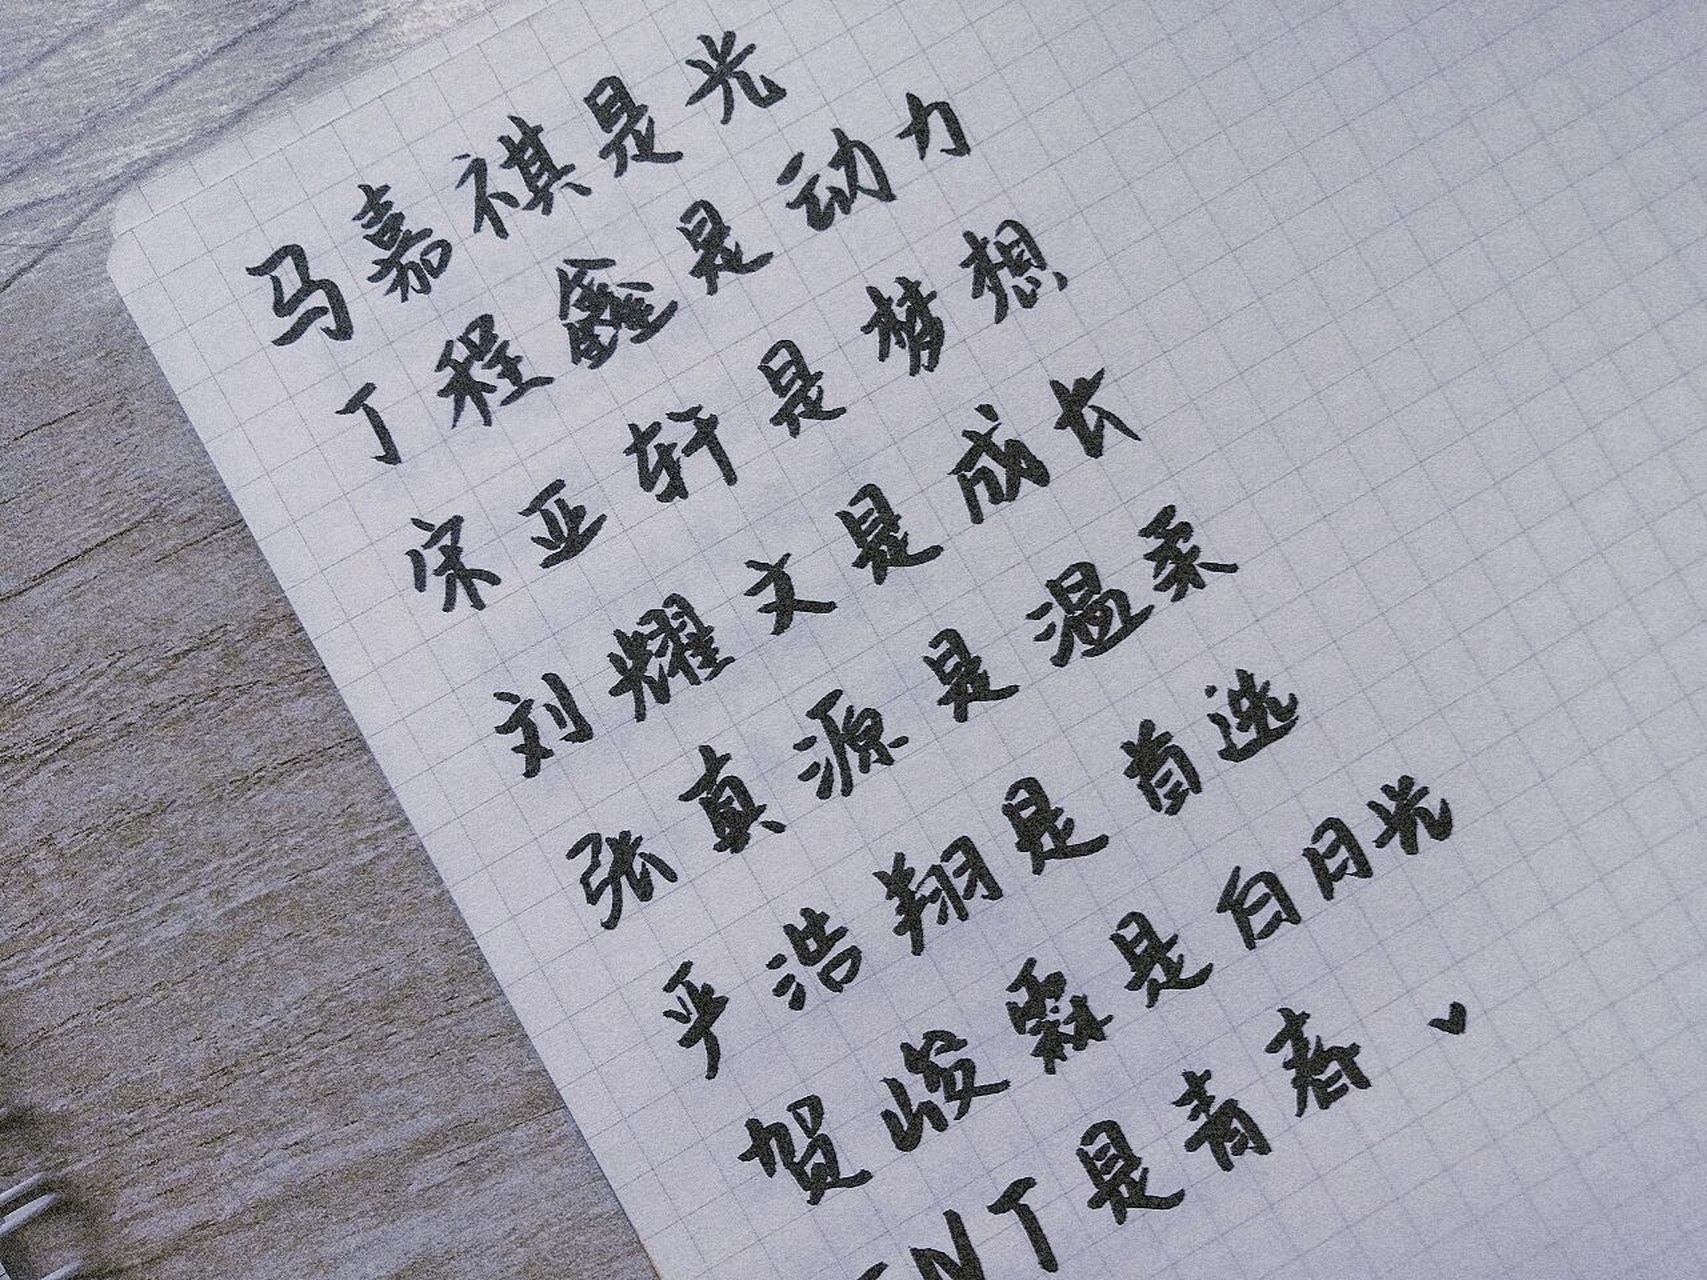 马嘉祺是光
丁程鑫是动力
宋亚轩是梦想
刘耀文是成长
张真源是温柔
严浩翔是首选
贺峻霖是白月光
TNT是青春